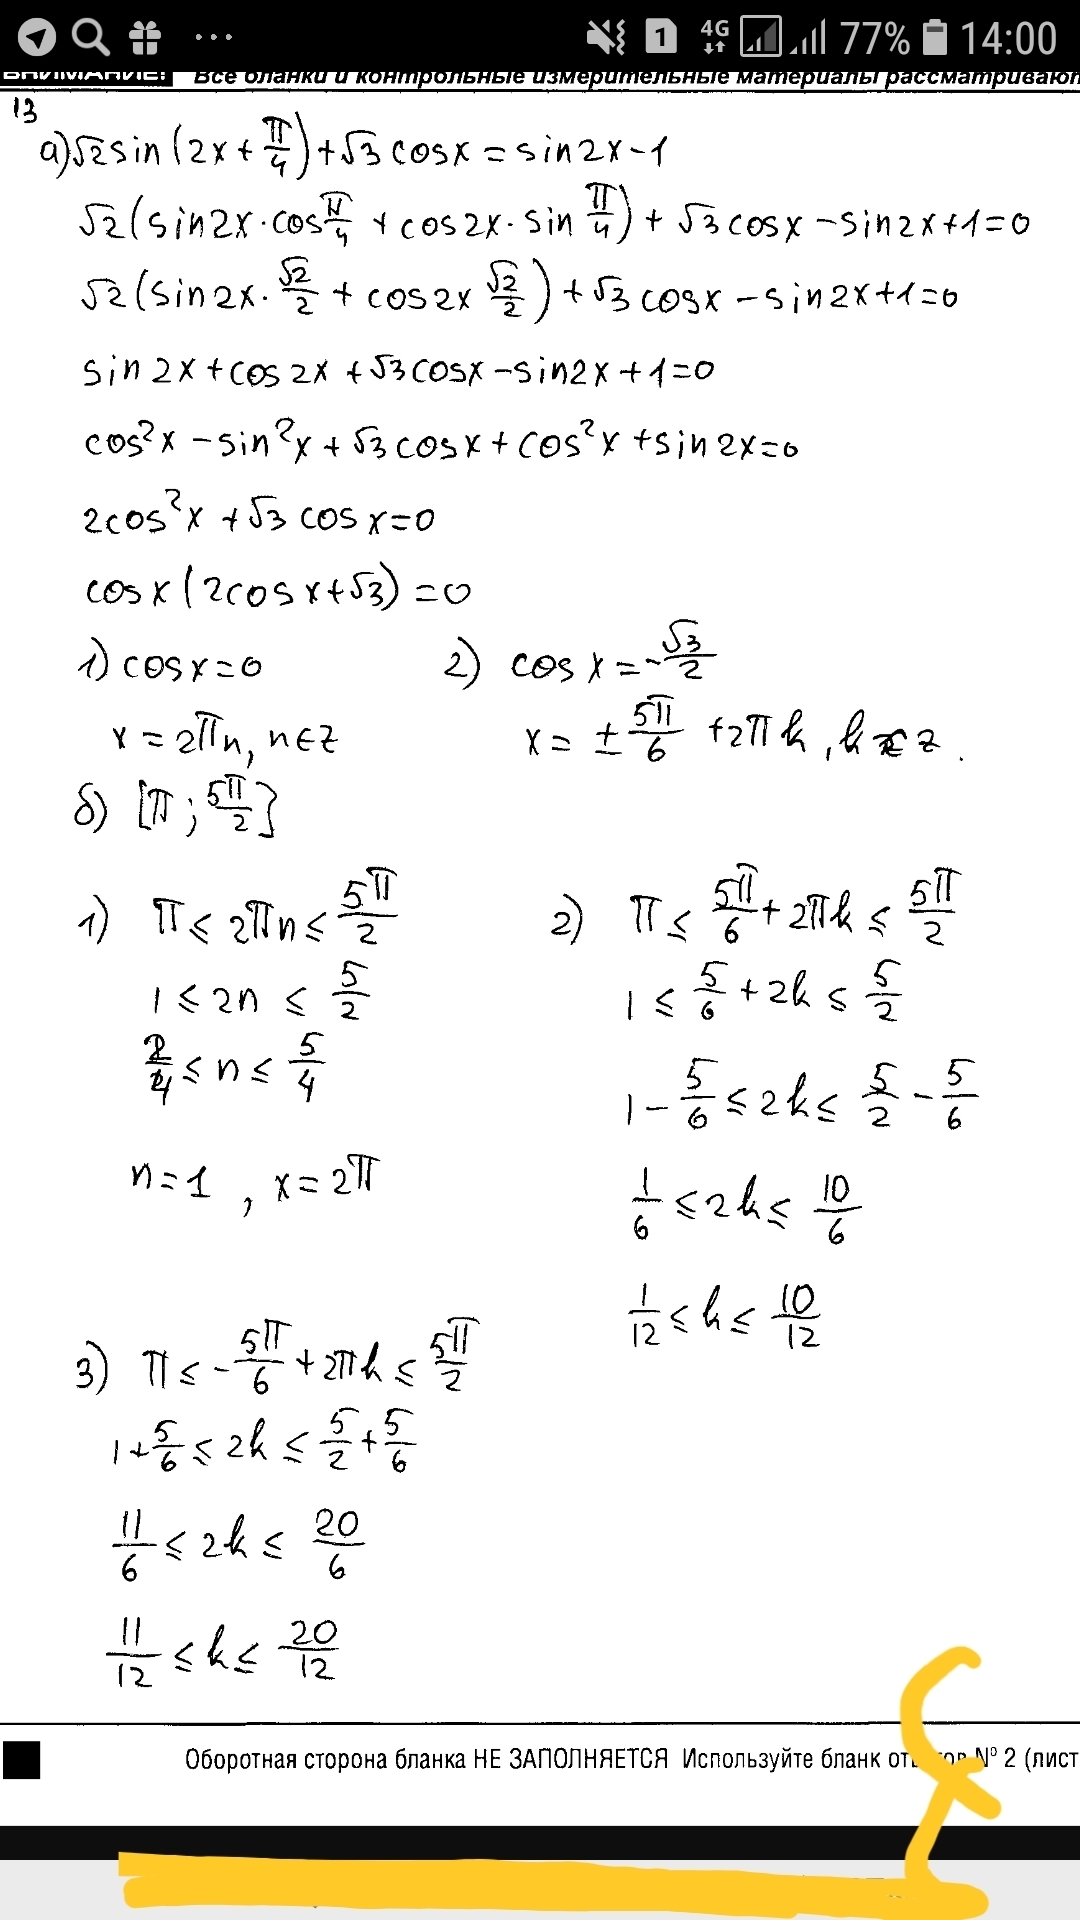 1 4G 77% 14:00
ВНИМАНИЕ! Все бланки и контрольные измерительные материалы рассматривают
13
а) √2 sin(2x + π/4) + √3 cosx = sin2x - 1
√2(sin2x · cos π/4 + cos2x · sin π/4) + √3 cosx - sin2x + 1 = 0
√2(sin2x · √2/2 + cos2x √2/2) + √3 cosx - sin2x + 1 = 0
sin2x + cos2x + √3 cosx - sin2x + 1 = 0
cos²x - sin²x + √3 cosx + cos²x + sin2x = 0
2cos²x + √3 cosx = 0
cosx(2cosx + √3) = 0
1) cosx = 0 2) cosx = -√3/2
x = 2πn, n∈z x = ± 5π/6 + 2πk, k∈z.
б) [π; 5π/2]
1) π ≤ 2πn ≤ 5π/2 2) π ≤ 5π/6 + 2πk ≤ 5π/2
1 ≤ 2n ≤ 5/2 1 ≤ 5/6 + 2k ≤ 5/2
2/4 ≤ n ≤ 5/4 1 - 5/6 ≤ 2k ≤ 5/2 - 5/6
n = 1, x = 2π 1/6 ≤ 2k ≤ 10/6
1/12 ≤ k ≤ 10/12
3) π ≤ -5π/6 + 2πk ≤ 5π/2
1 + 5/6 ≤ 2k ≤ 5/2 + 5/6
11/6 ≤ 2k ≤ 20/6
11/12 ≤ k ≤ 20/12
Оборотная сторона бланка НЕ ЗАПОЛНЯЕТСЯ Используйте бланк № 2 (лист